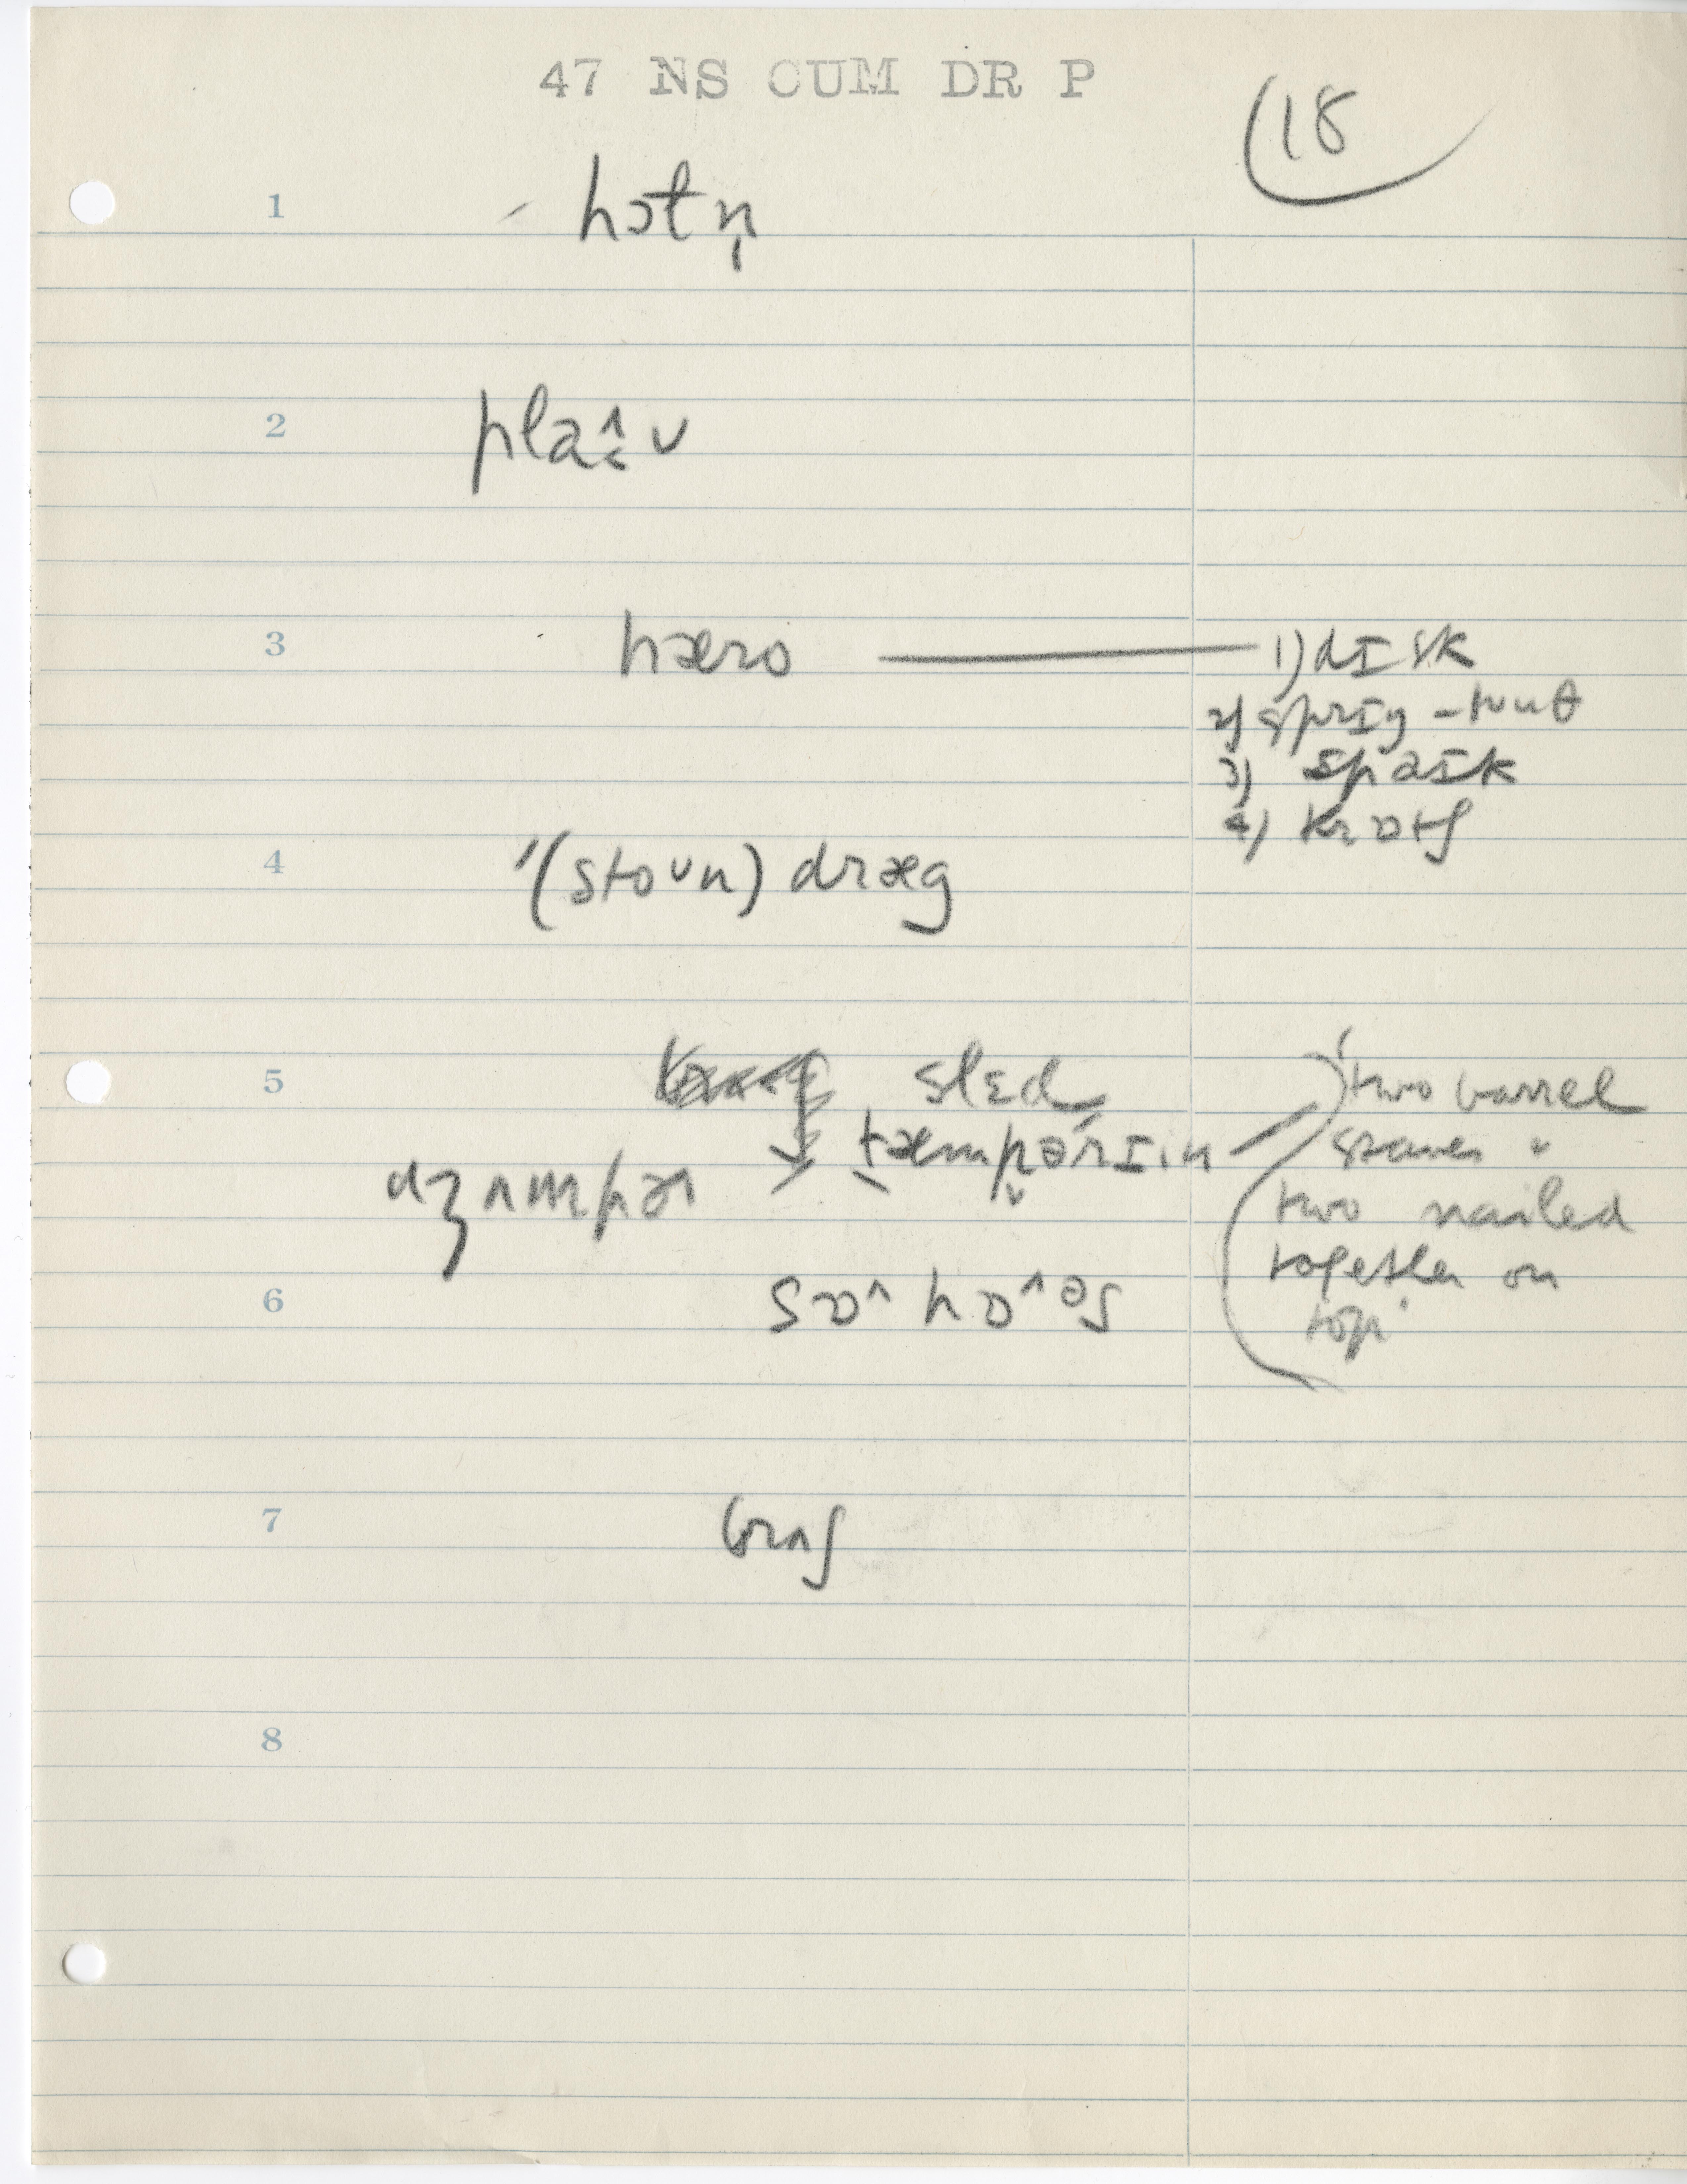 47 NS CUM DR P
18
1 hɔtn̩
2 plaʌ̂ʊ
3 hæro — 1) dɪsk
2) sprɪŋ-tuuθ
3) spaɪk
4) krɒtʃ
4 '(stoʊn) dræg
5 slɛd
tæmpərɪn
dʒʌmpər
(two barrel
staves &
two nailed
together on
top)
6 sɒ^ hɒ^əs
7 brʌʃ
8